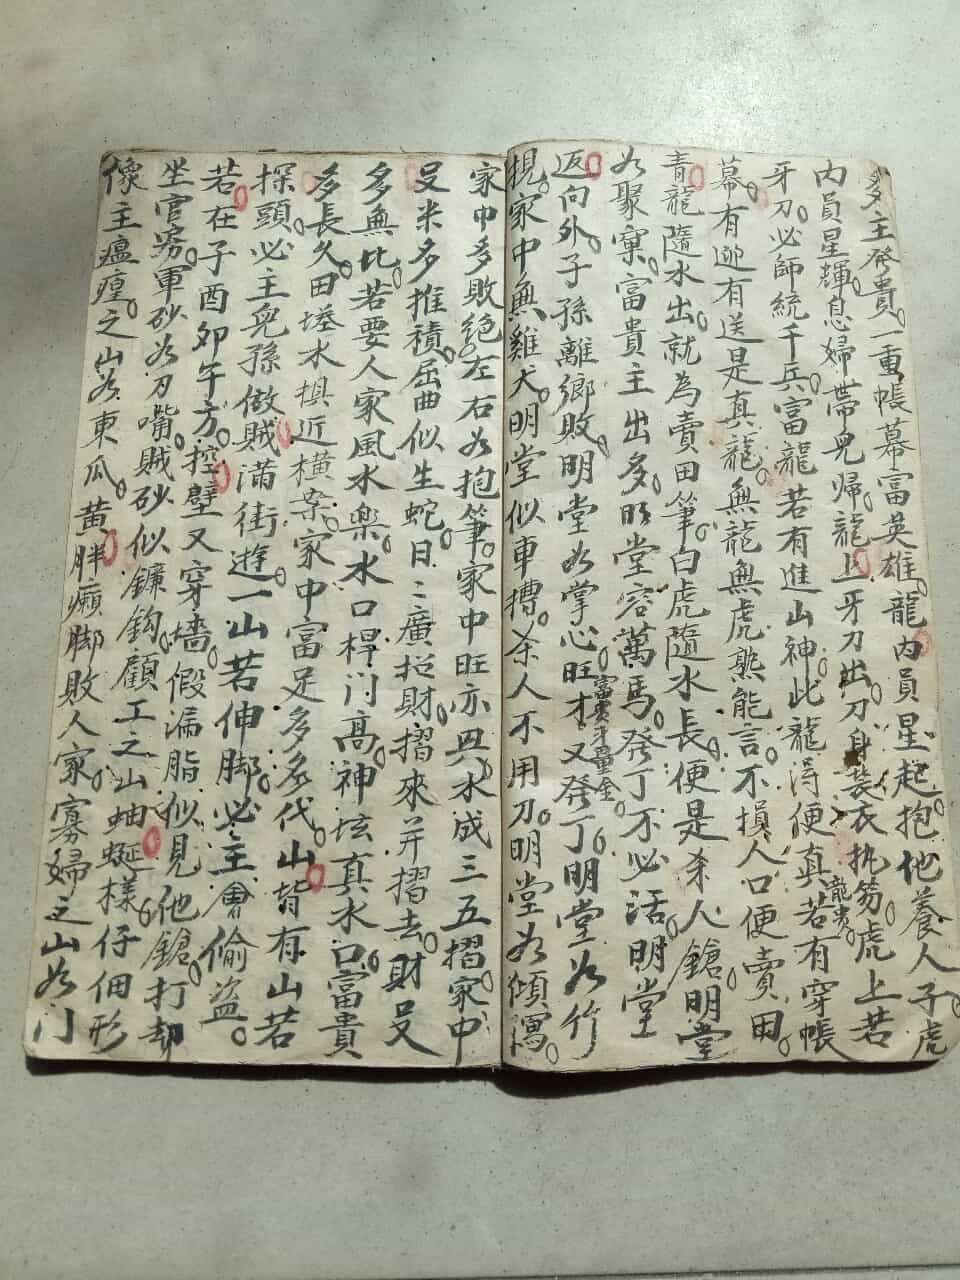 多主發貴。一重帳幕富英雄。龍內員星起。抱他養人子。虎
內員星輝。息婦帶兒歸。龍上牙刀出。刀身裝衣執笏。虎上若
牙刀。必師統千兵。富龍若有進山神。此龍淂便真。若有穿帳
龍貴。
幕。有迎有送是真龍。無龍無虎熟能言。不損人口便賣田。
青龍隨水出。就為賣田筆。白虎隨水長。便是杀人鎗。明堂
如聚窠。富貴主出多。明堂容萬馬。發丁不必活。明堂
返向外。子孫離鄉敗。明堂如掌心。旺才又發丁。明堂如竹
富貴斗量金。
梘。家中無雞犬。明堂似車槽。杀人不用刀。明堂如傾瀉。
家中多敗絕。左右如抱筆。家中旺亦兴。水成三五摺。家中
足米多推積。屈曲似生蛇。日〻廣招財。摺來并摺去。財足
多無比。若要人家風水樂。水口桿门高。神坛真水口。富貴
多長久。田塍水損近橫案。家中富足多多代。山背有山若
探頭。必主兒孫做賊滿街遊。一山若伸脚。必主會偷盜。
若在子酉卯午方。挖壁又穿墻。假漏脂似見他鎗。打却
坐官穷。軍砂如刀嘴。賊砂似鐮鈎。顧工之山蚰蜒樣。仔佃形
像主瘟㾮。之山如東瓜。黃胖癩脚敗人家。寡婦之山如门